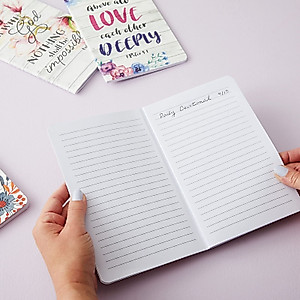 God
NOTHING
impossible
Above all
LOVE
each other
DEEPLY
1 Peter 4:8
Daily Devotional 9/17